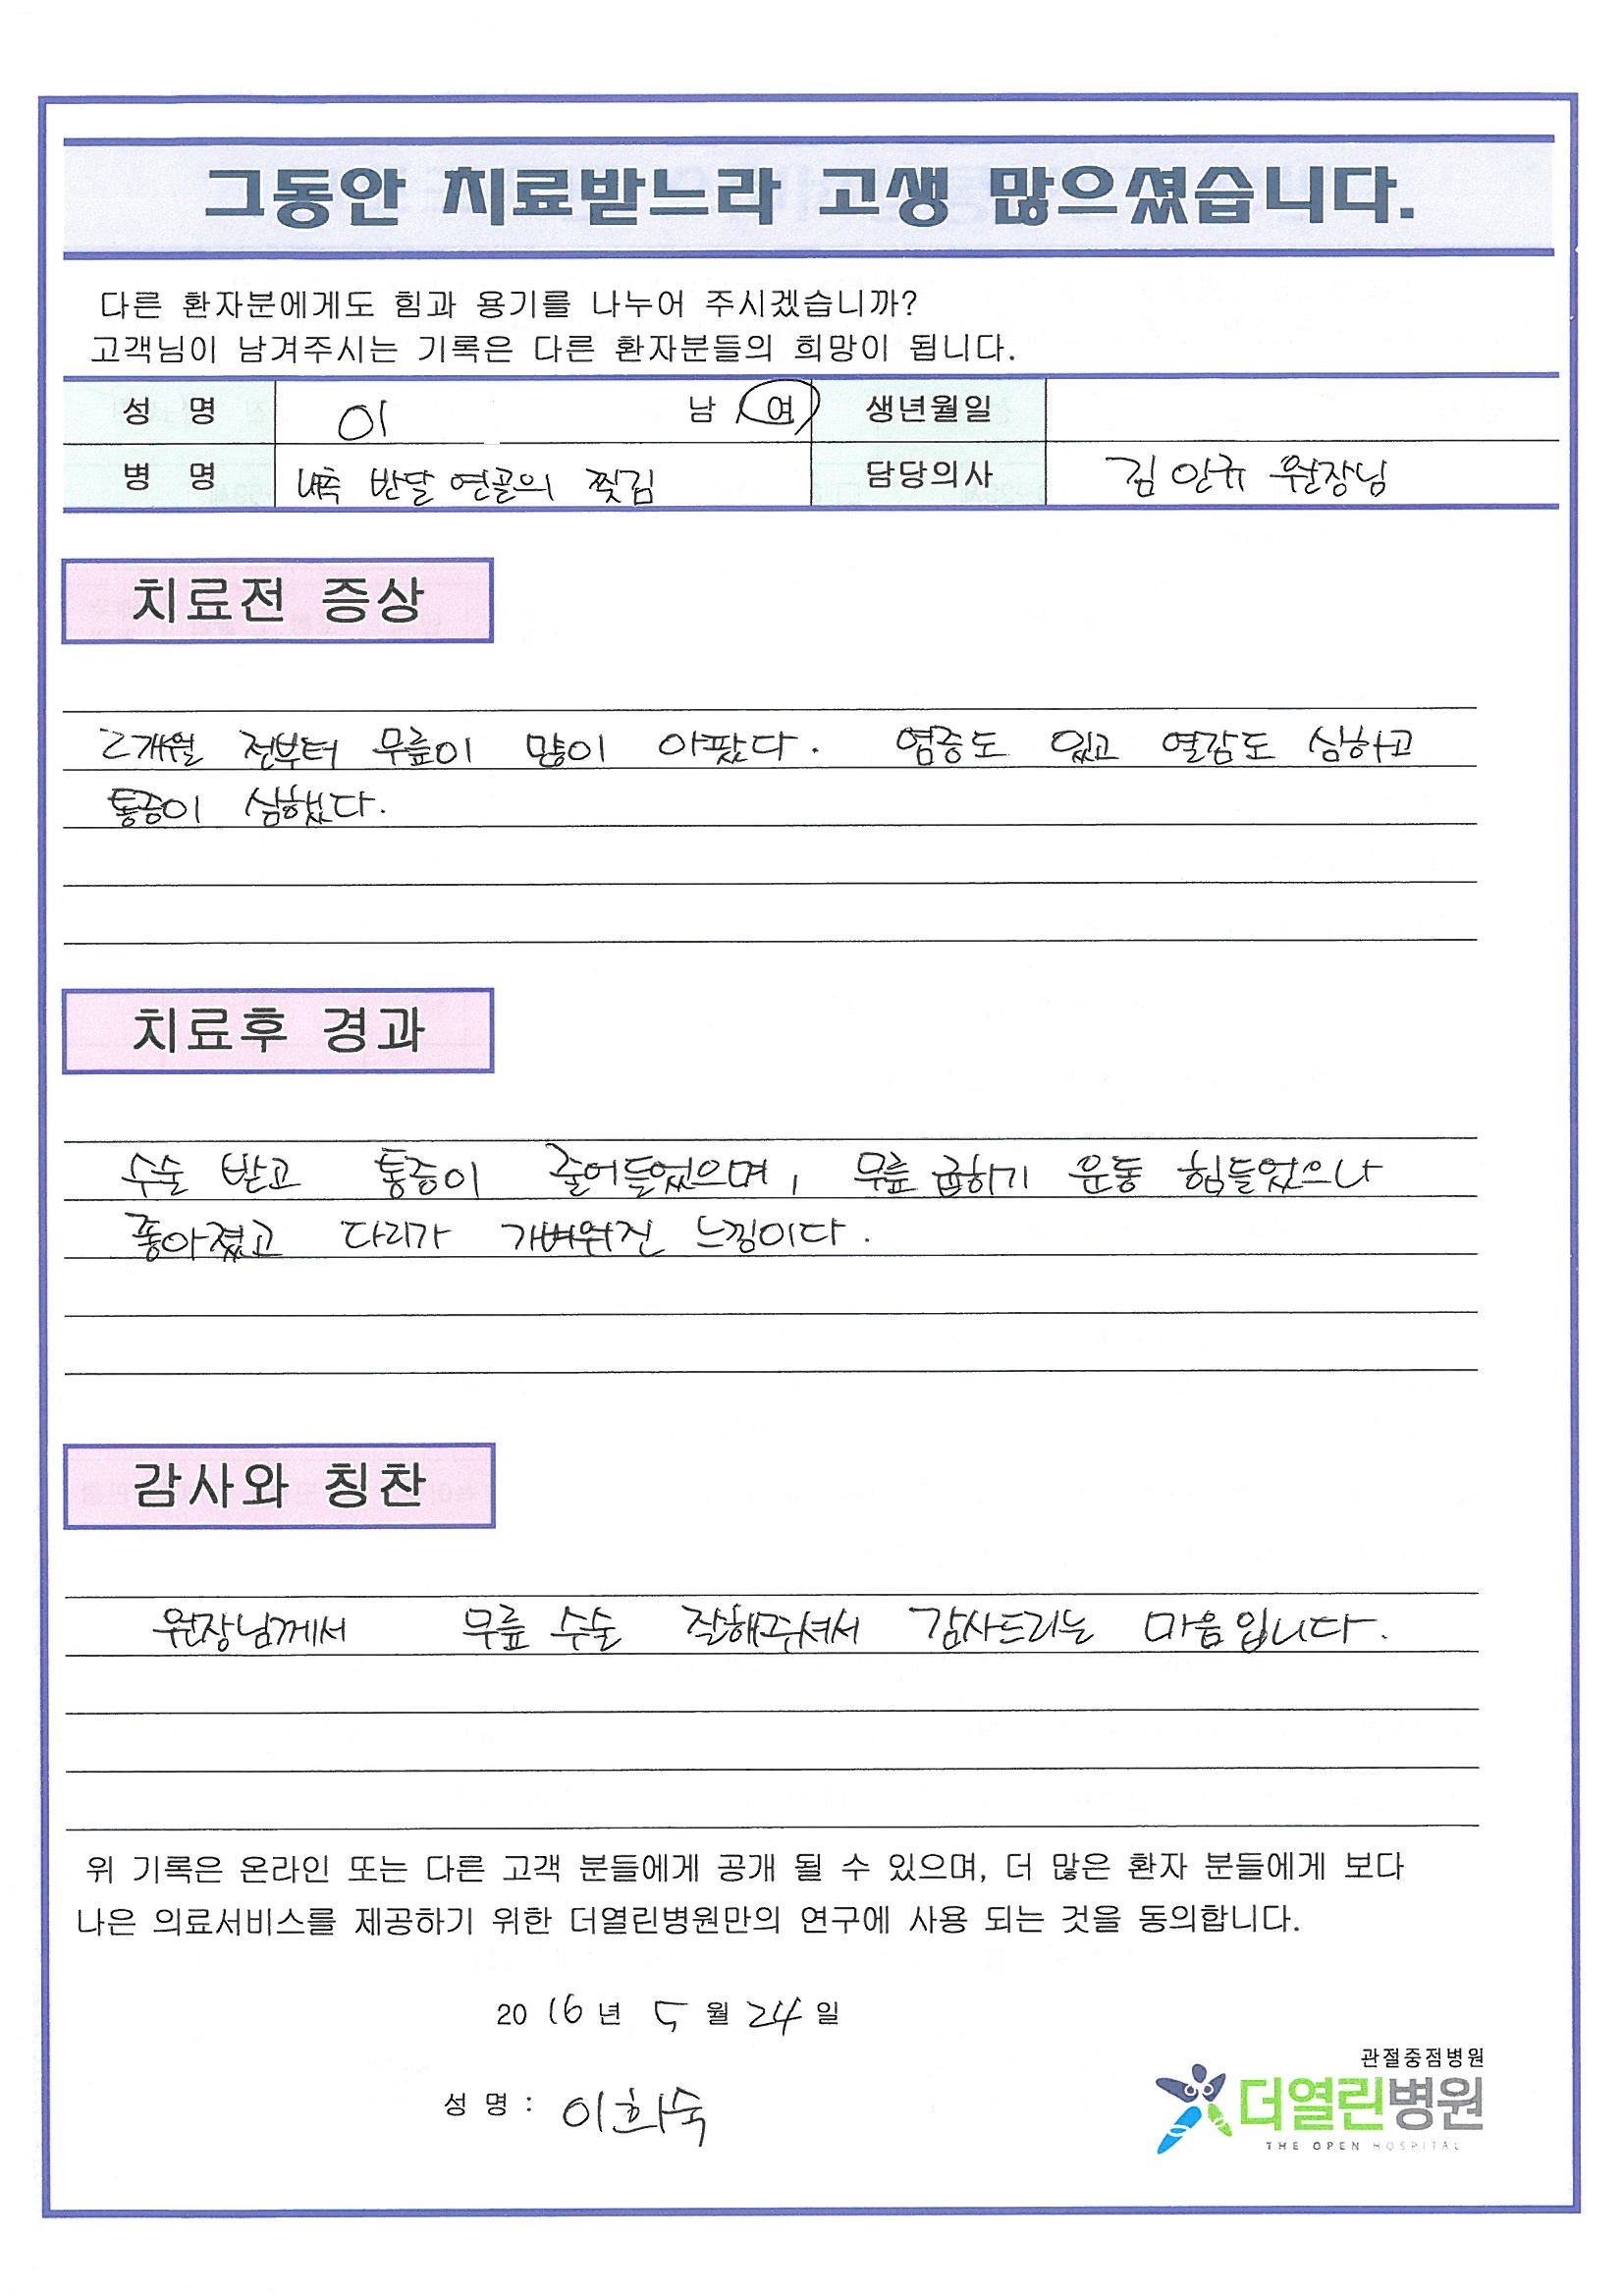 그동안 치료받느라 고생 많으셨습니다.
다른 환자분에게도 힘과 용기를 나누어 주시겠습니까?
고객님이 남겨주시는 기록은 다른 환자분들의 희망이 됩니다.
성 명 이 남 / 여 생년월일
병 명 내측 반달 연골의 찢김 담당의사 김안규 원장님
치료전 증상
2개월 전부터 무릎이 많이 아팠다. 염증도 있고 열감도 심하고
통증이 심했다.
치료후 경과
수술 받고 통증이 줄어들었으며, 무릎 굽히기 운동 힘들었으나
좋아졌고 다리가 가벼워진 느낌이다.
감사와 칭찬
원장님께서 무릎 수술 잘해주셔서 감사드리는 마음입니다.
위 기록은 온라인 또는 다른 고객 분들에게 공개 될 수 있으며, 더 많은 환자 분들에게 보다
나은 의료서비스를 제공하기 위한 더열린병원만의 연구에 사용 되는 것을 동의합니다.
2016년 5월 24일
성 명 : 이화숙
관절중점병원
더열린병원
THE OPEN HOSPITAL